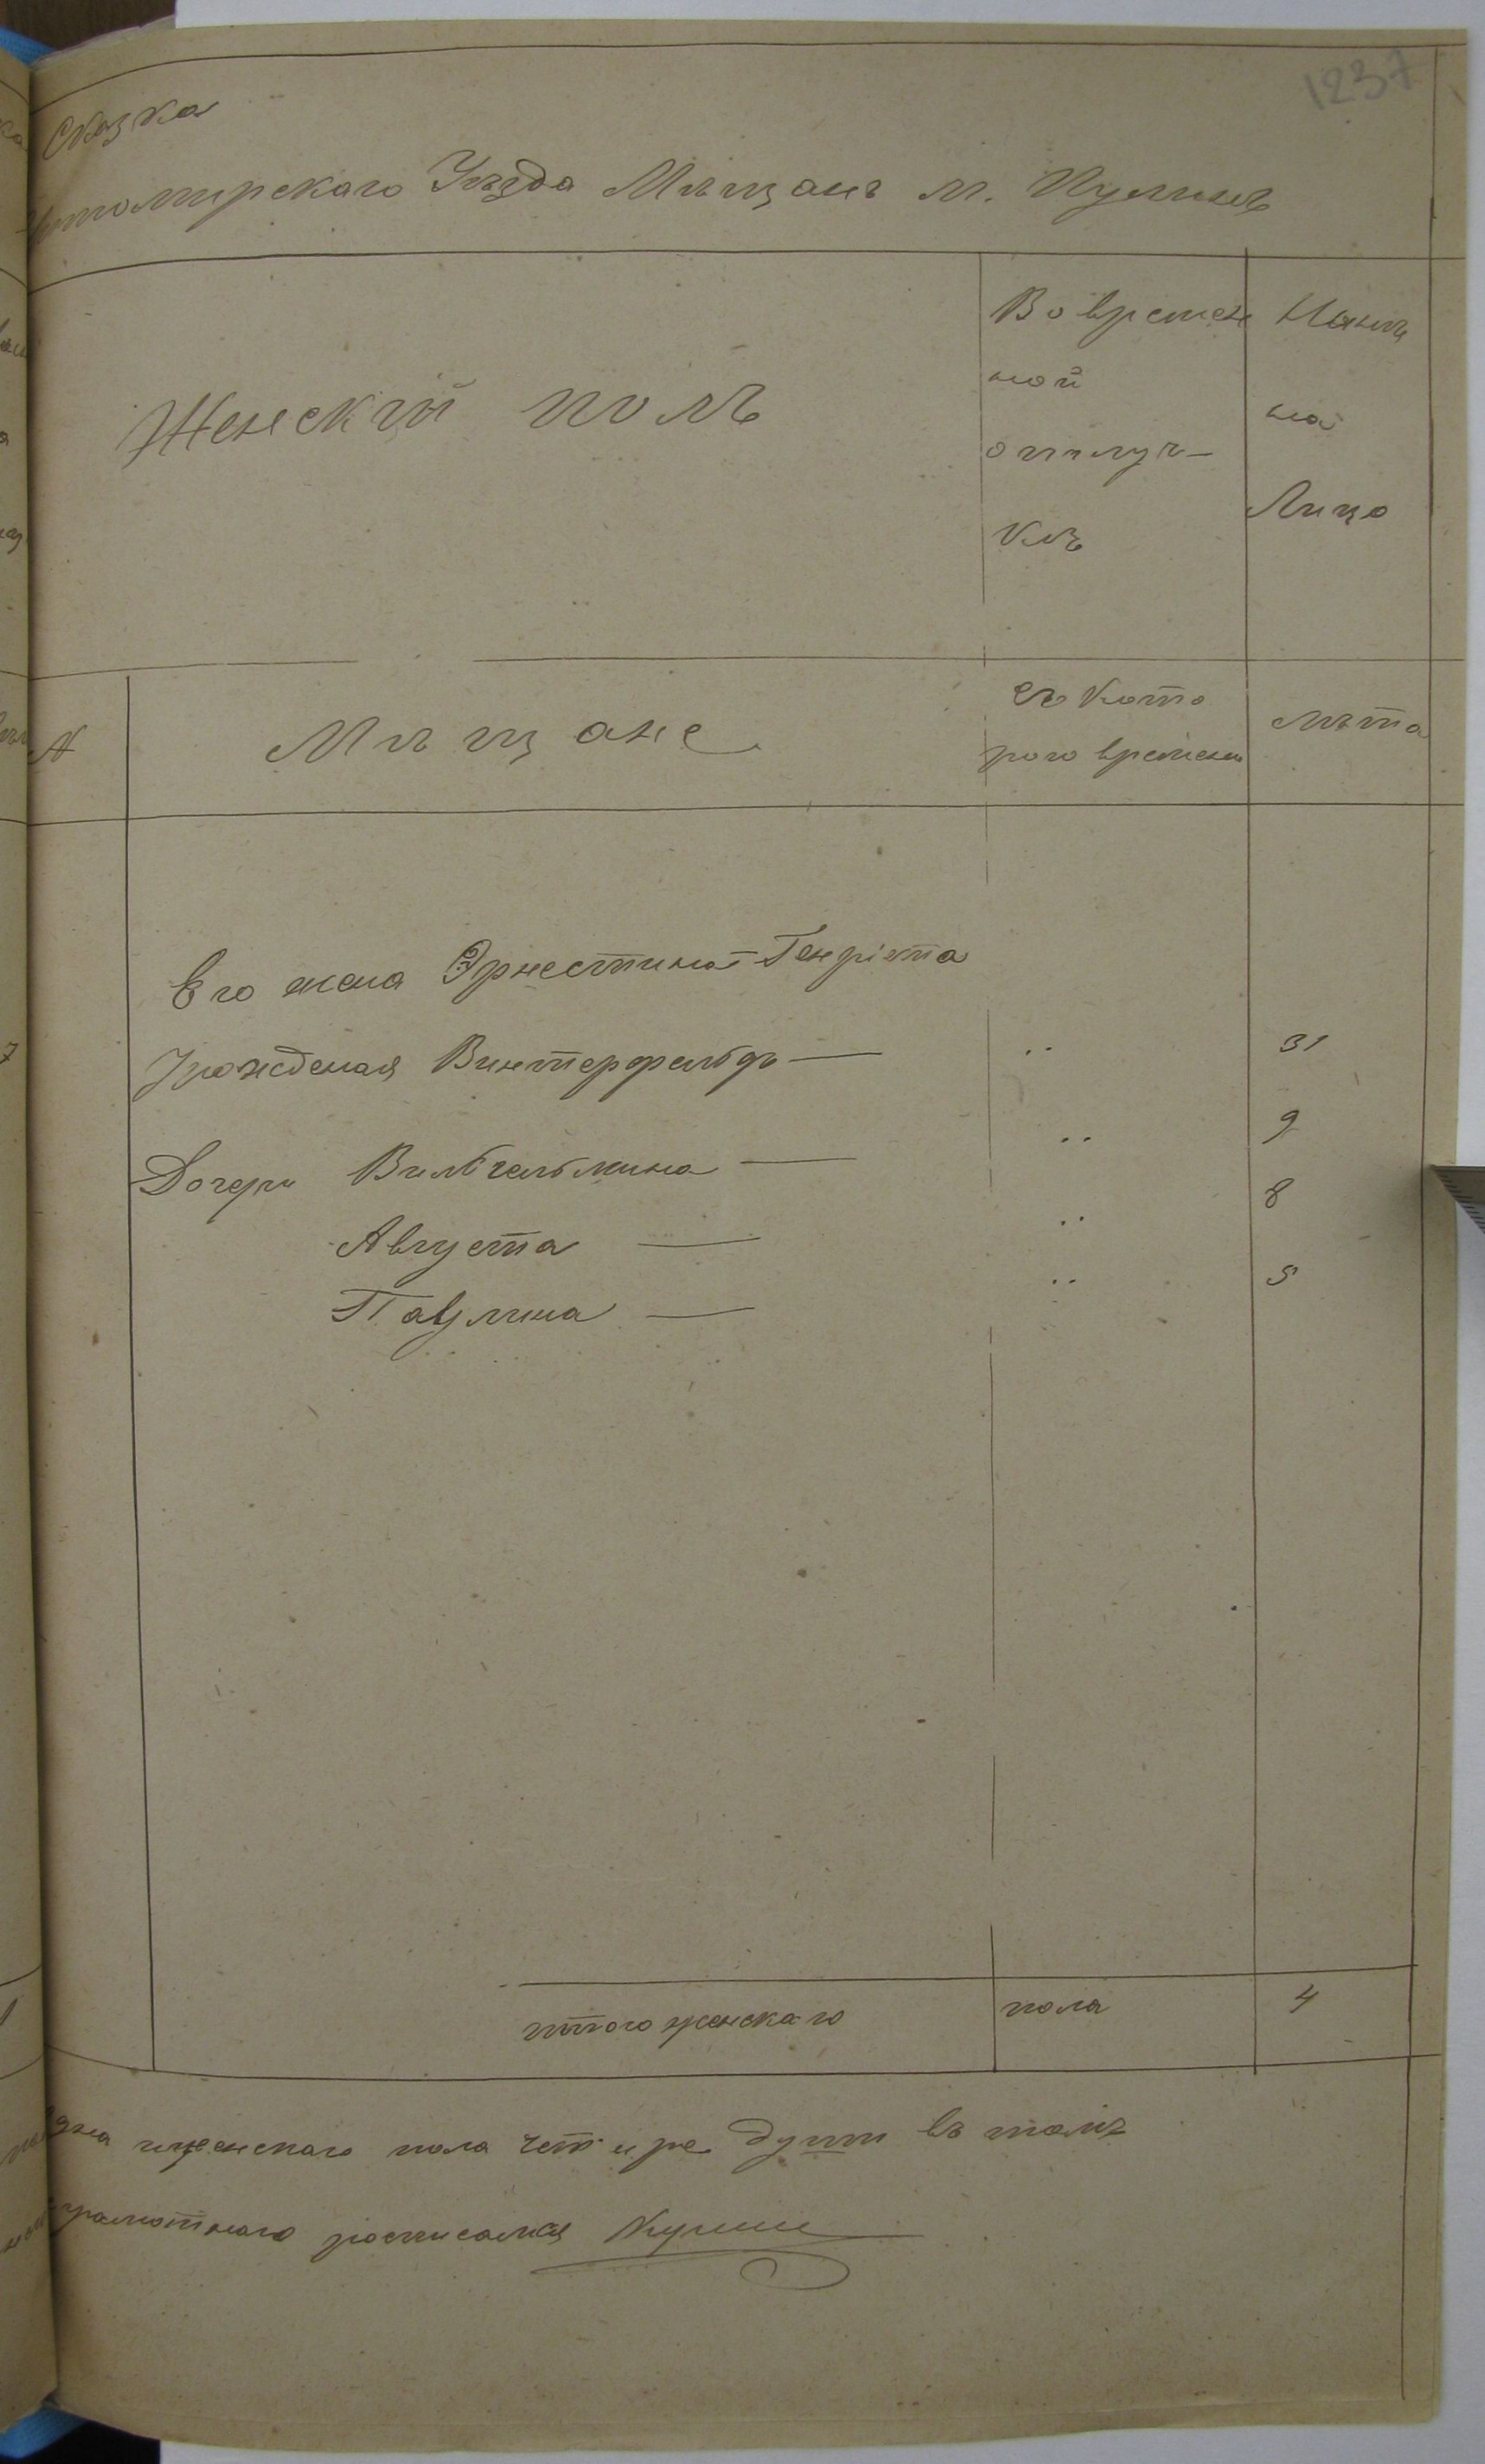 1237
Сказка
Житомирскаго Уѣзда Мѣщанъ м. Пулинъ
Женскій полъ
Во времен
ной
отлуч-
кѣ
Нынѣ
на
Лицо
N
Мѣщане
съ кото
рого времени
лѣта
Его жена Эрнестина-Генріэта
Урожденая Винтерфельдъ — .. 31
Дочери Вильгельмина — .. 9
Августа — .. 8
Павлина — .. 5
итого женскаго пола 4
женскаго пола четире души въ томъ
грамотнаго росписался